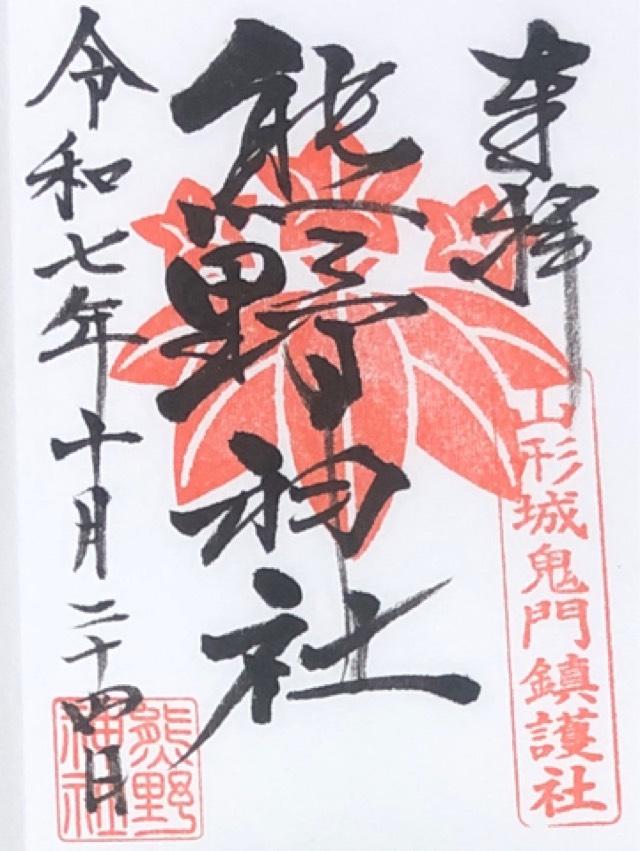 奉拝
山形城鬼門鎮護社
熊野神社
令和七年十月二十四日
熊野
神社